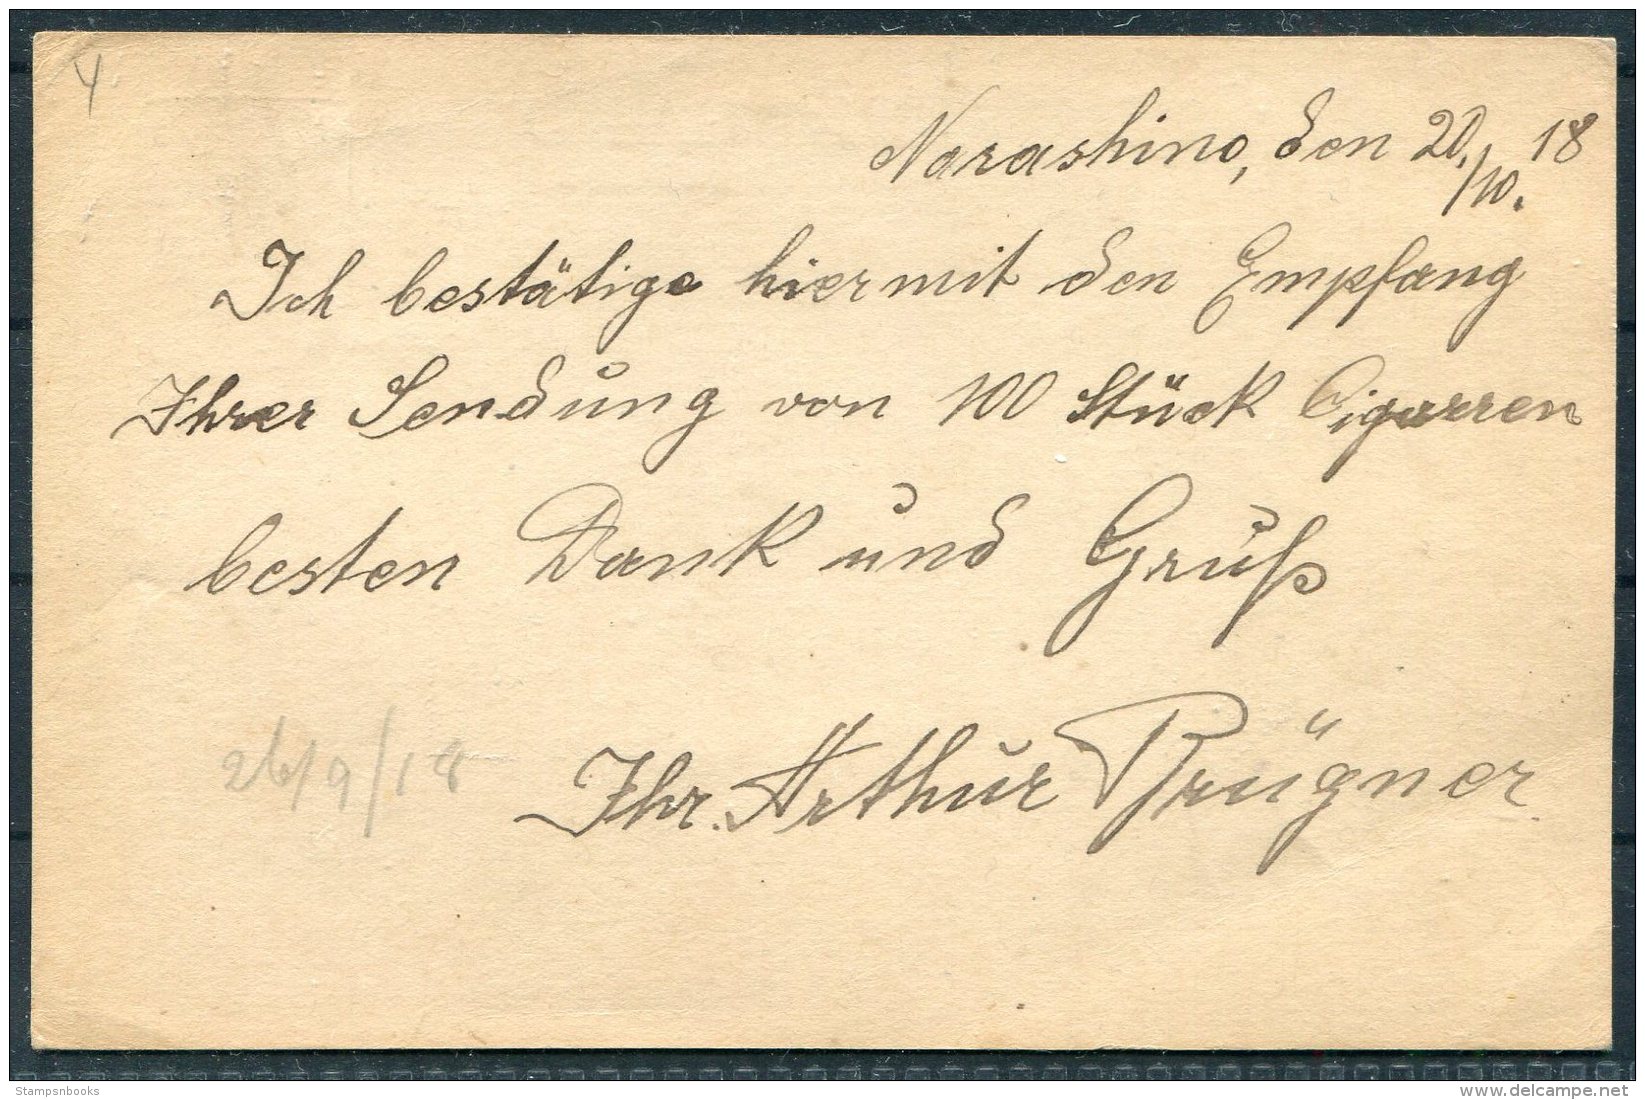 4
Narashino, den 20./10. 18
Ich bestätige hiermit den Empfang
Ihrer Sendung von 100 Stück Cigarren
besten Dank und Gruß
26/9/18
Ihr. Arthur Brügner
Stampsnbooks
www.delcampe.net